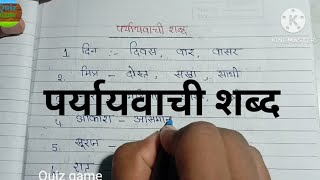 पर्यायवाची शब्द
1. दिन :- दिवस, वार, वासर
2. मित्र - दोस्त, सखा, साथी
पर्यायवाची शब्द
4. आकाश - आसमान
5. सूरज -
Quiz game